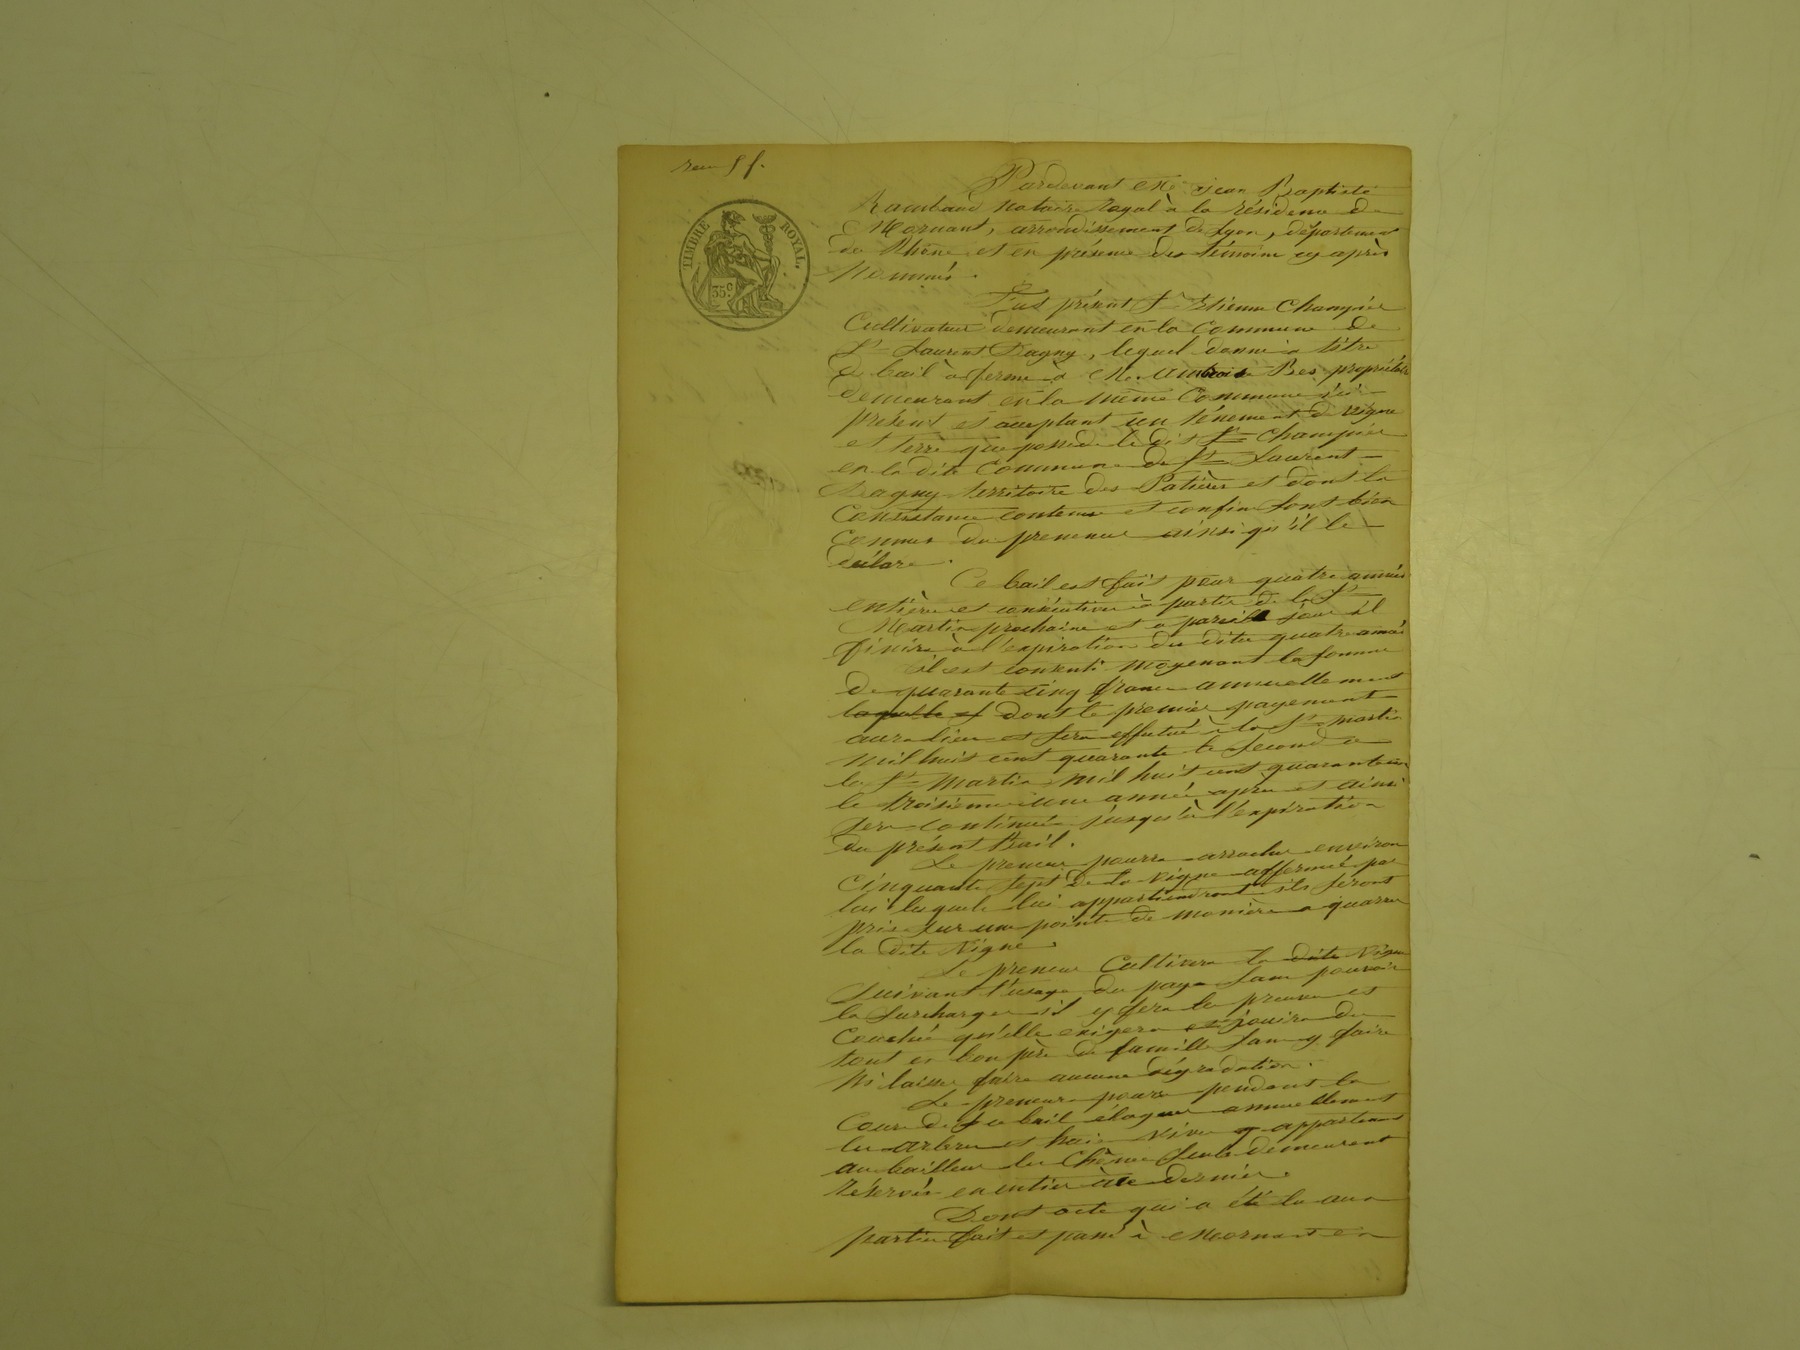 reçu 5 f.
TIMBRE ROYAL.
35 c
Pardevant Me Jean Baptiste
Rambaud notaire royal à la résidence de
Mornant, arrondissement de Lyon, département
du Rhône et en présence des témoins cy après
Nommés.
Fut présent Sr Etienne Champier
Cultivateur demeurant en la Commune de
St Laurent Dagny, lequel donne à titre
de bail à ferme à Mr. Ambroise Bes propriétaire
demeurant en la même Commune ici
présent et acceptant un ténement de vigne
et terre que possède le dit Sr Champier
en la dite Commune de St Laurent
Dagny territoire des Patières et dont la
Consistance contenue et confins sont bien
Connus du preneur ainsi qu'il le
déclare.
Ce bail est fait pour quatre années
entières et consécutives à partir de la St
Martin prochaine et a pareille jour il
finira à l'expiration des dites quatre années
il est consenti moyenant la somme
de quarante cinq francs annuellement
laquelle s dont le premier payement
aura lieu et sera effectué à la St martin
mil huit cent quarante le second à
la St Martin mil huit cent quarante un
le troisième une année après et ainsi
sera continué jusqu'à l'expiration
du présent Bail.
Le preneur pourra arracher environ
Cinquante sept de la vigne affermée par
lui lesquels lui appartiendront ils seront
pris sur une pointe de manière a quarrer
la dite Vigne.
Le preneur Cultivera la dite Vigne
suivant l'usage du pays sans pouvoir
la surcharger il y fera les preuves et
Couchés qu'elle exigera et jouira du
tout en bon père de famille sans y faire
Ni laisser faire aucune dégradation.
Le preneur poura pendant le
Cours de ce bail élaguer annuellement
les arbres et haies vives y appartenant
au bailleur les Chênes seuls demeurent
réservés en entier à ce dernier.
Dont acte qui a été lu aux
parties fait et passé à Mornant en